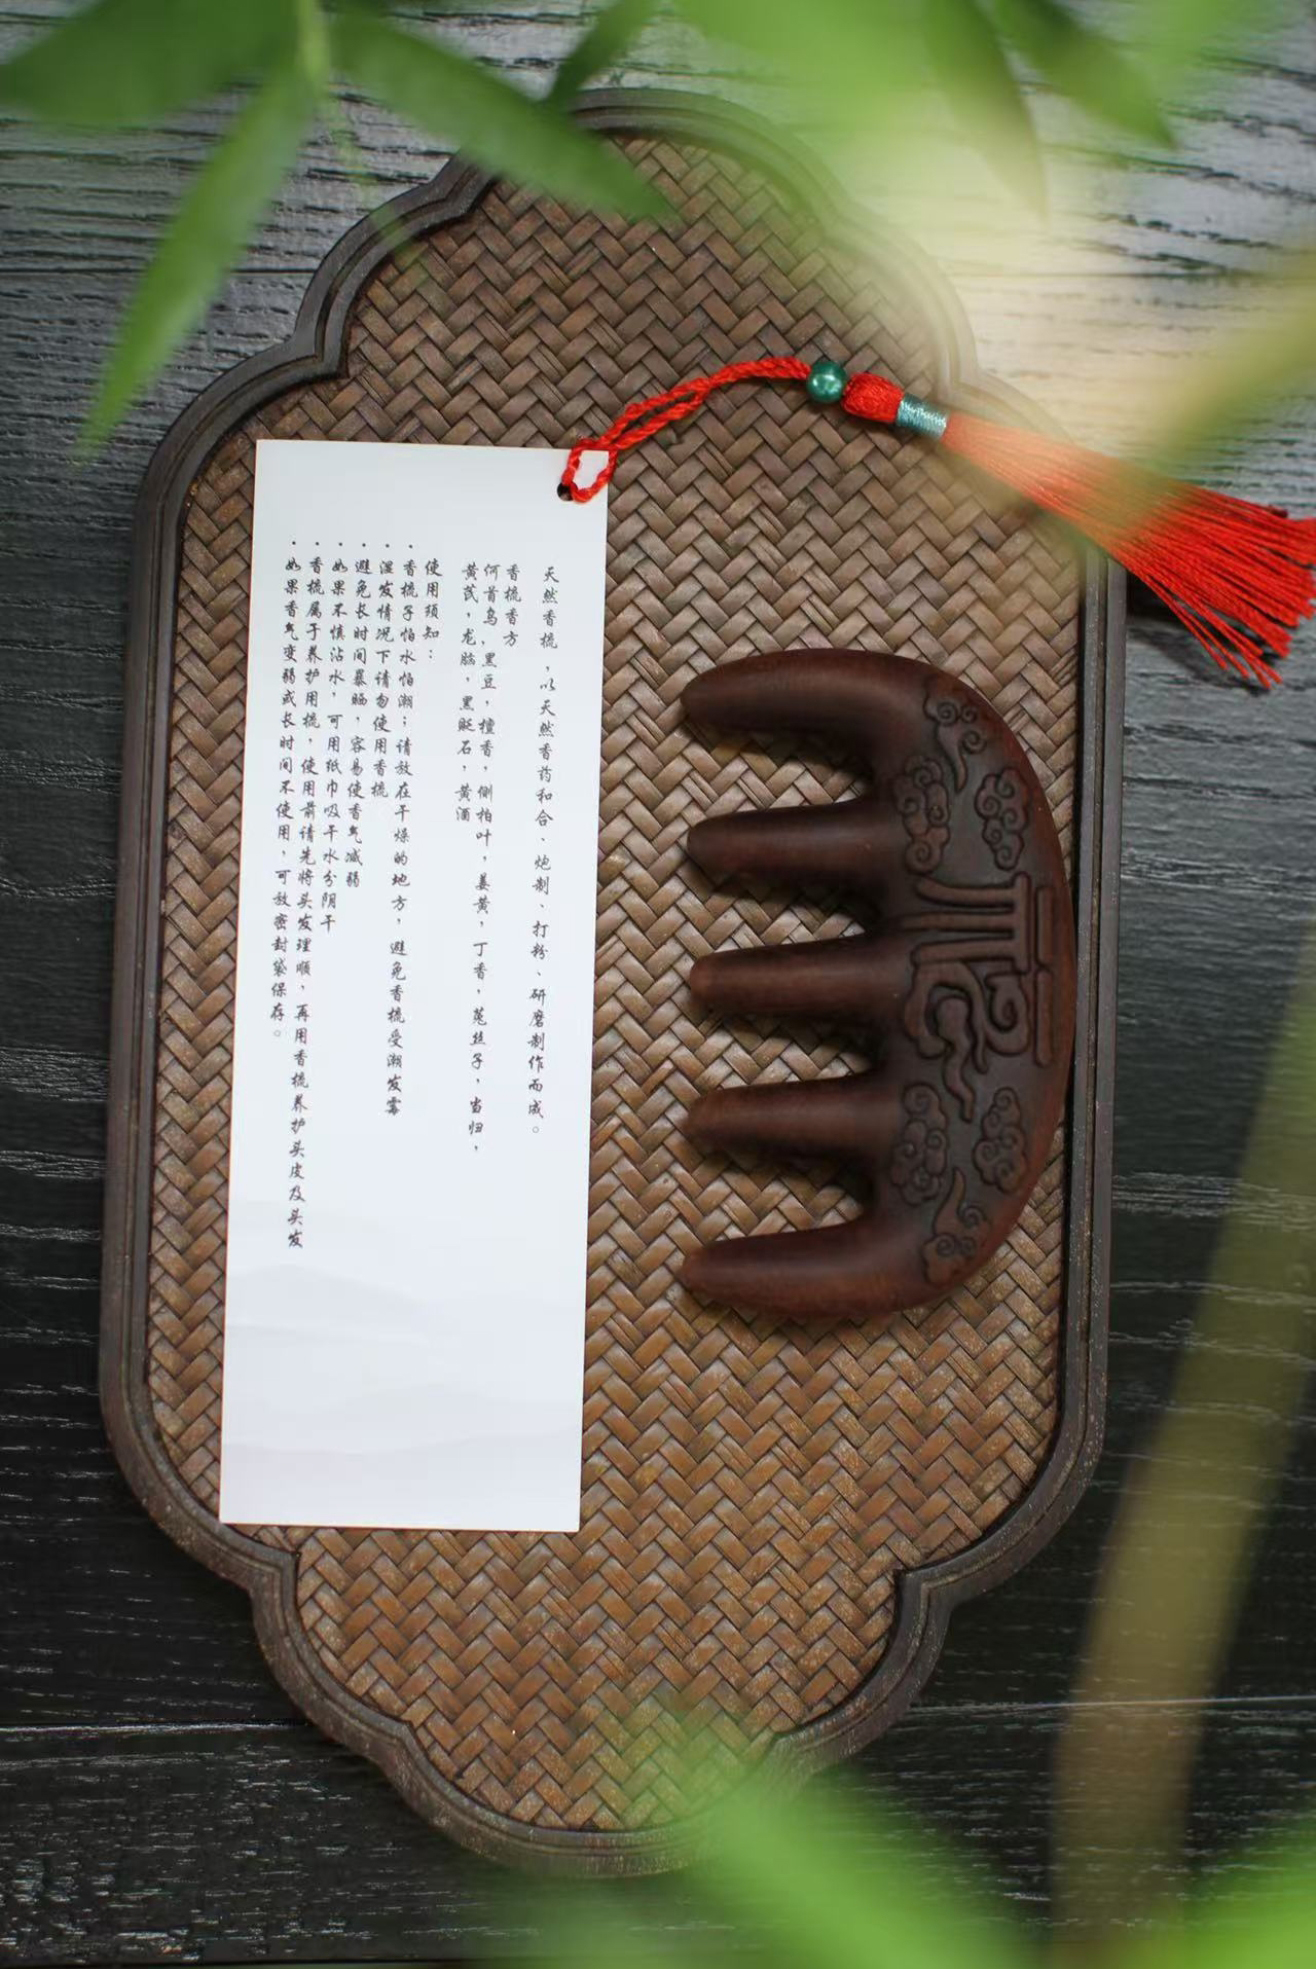 天然香梳，以天然香药和合、炮制、打粉、研磨制作而成。
香梳香方
何首乌，黑豆，檀香，侧柏叶，姜黄，丁香，菟丝子，当归，
黄芪，龙脑，黑砭石，黄酒
使用须知：
·香梳子怕水怕潮；请放在干燥的地方，避免香梳受潮发霉
·湿发情况下请勿使用香梳
·避免长时间暴晒，容易使香气减弱
·如果不慎沾水，可用纸巾吸干水分阴干
·香梳属于养护用梳，使用前请先将头发理顺，再用香梳养护头皮及头发
·如果香气变弱或长时间不使用，可放密封袋保存。